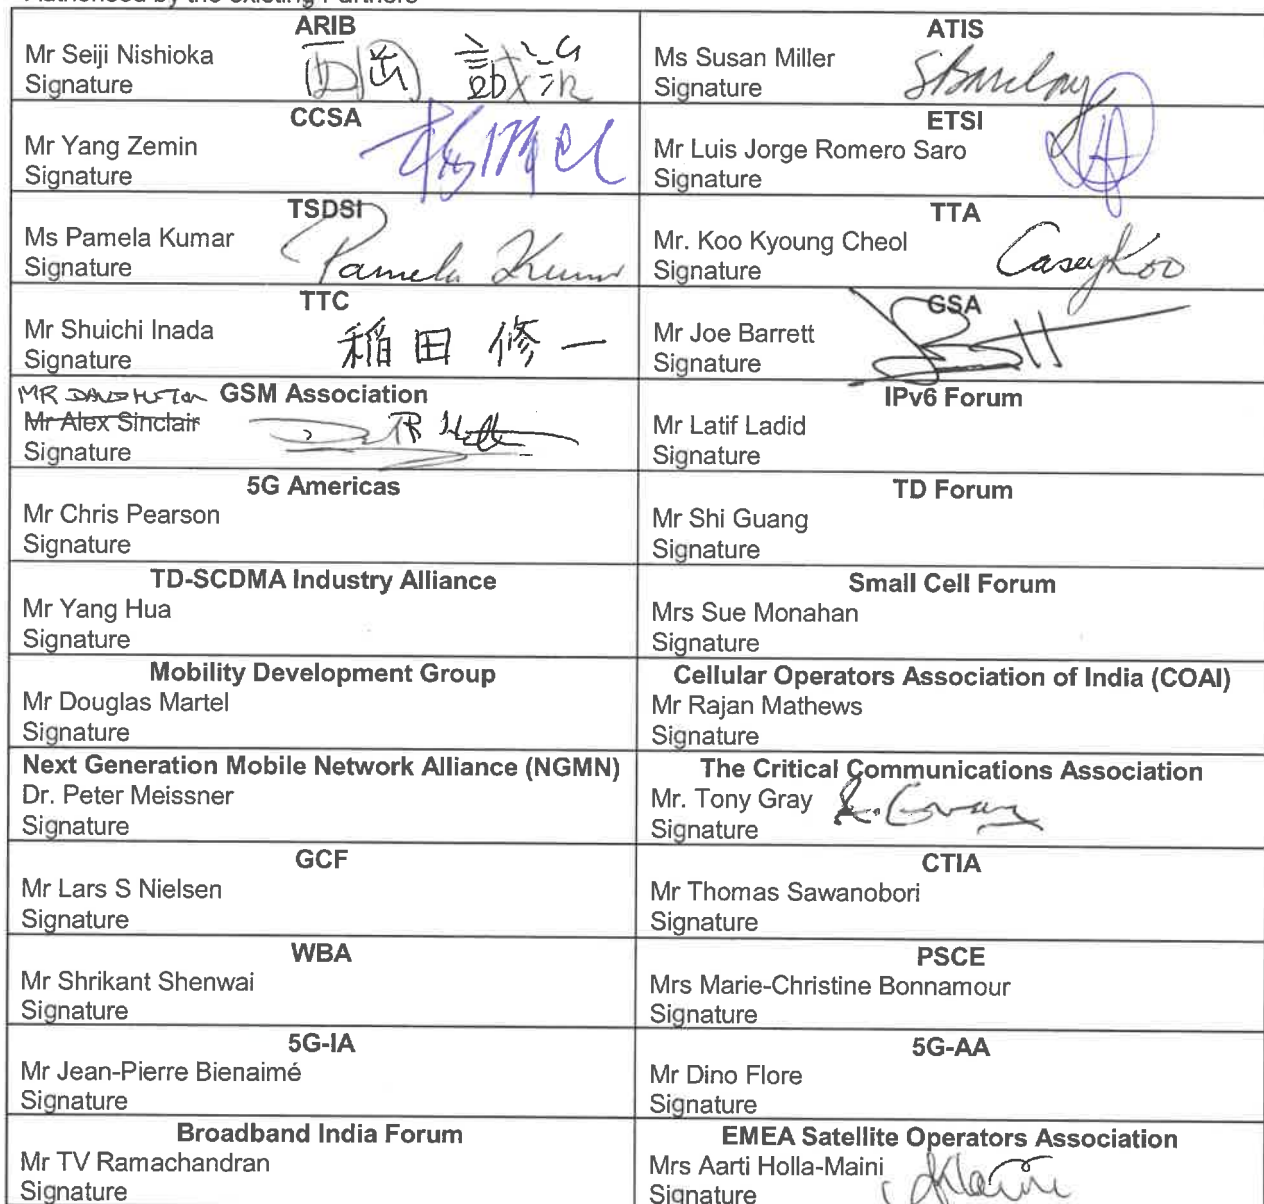 Authorised by the existing Partners
ARIB
Mr Seiji Nishioka
Signature
西岡 誠治
ATIS
Ms Susan Miller
Signature
CCSA
Mr Yang Zemin
Signature
ETSI
Mr Luis Jorge Romero Saro
Signature
TSDSI
Ms Pamela Kumar
Signature
Pamela Kumar
TTA
Mr. Koo Kyoung Cheol
Signature
Casey Koo
TTC
Mr Shuichi Inada
Signature
稲田 修一
GSA
Mr Joe Barrett
Signature
GSM Association
Mr Alex Sinclair
Signature
IPv6 Forum
Mr Latif Ladid
Signature
5G Americas
Mr Chris Pearson
Signature
TD Forum
Mr Shi Guang
Signature
TD-SCDMA Industry Alliance
Mr Yang Hua
Signature
Small Cell Forum
Mrs Sue Monahan
Signature
Mobility Development Group
Mr Douglas Martel
Signature
Cellular Operators Association of India (COAI)
Mr Rajan Mathews
Signature
Next Generation Mobile Network Alliance (NGMN)
Dr. Peter Meissner
Signature
The Critical Communications Association
Mr. Tony Gray
Signature
GCF
Mr Lars S Nielsen
Signature
CTIA
Mr Thomas Sawanobori
Signature
WBA
Mr Shrikant Shenwai
Signature
PSCE
Mrs Marie-Christine Bonnamour
Signature
5G-IA
Mr Jean-Pierre Bienaimé
Signature
5G-AA
Mr Dino Flore
Signature
Broadband India Forum
Mr TV Ramachandran
Signature
EMEA Satellite Operators Association
Mrs Aarti Holla-Maini
Signature